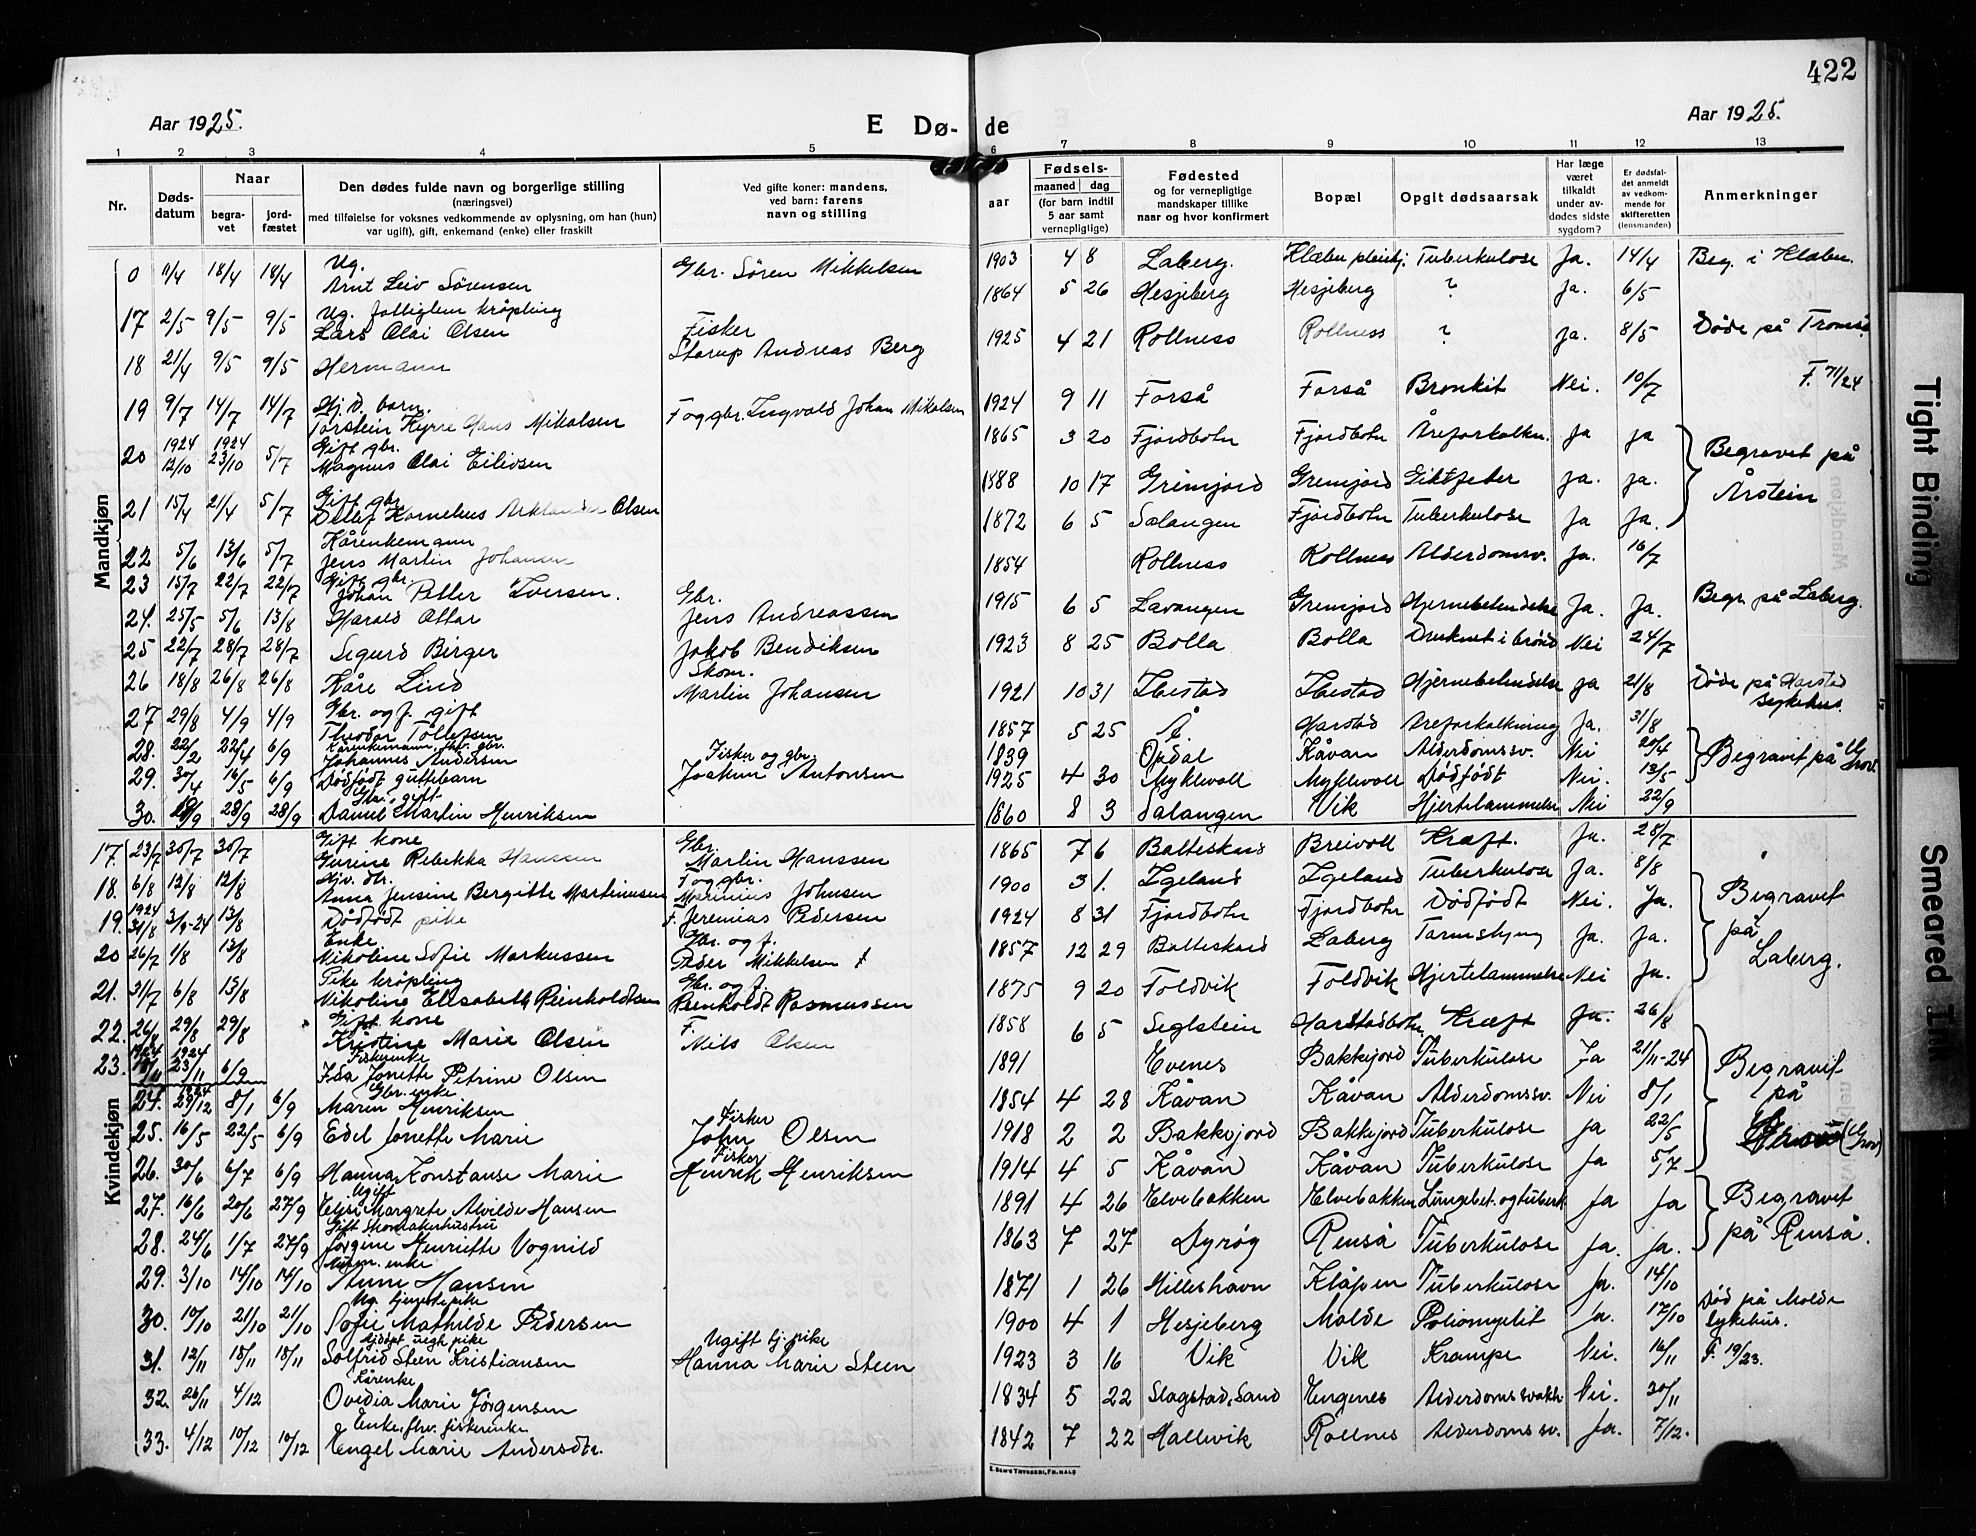 422
Aar 1925.
E Dø-
de
Aar 1925.
1 2 3 4 5 6 7 8 9 10 11 12 13
Nr.
Døds-
datum
Naar
begra-
vet
jord-
fæstet
Den dødes fulde navn og borgerlige stilling
(næringsvei)
med tilføielse for voksnes vedkommende av oplysning, om han (hun)
var ugift), gift, enkemand (enke) eller fraskilt
Ved gifte koner: mandens,
ved barn: farens
navn og stilling
Fødsels-
aar
maaned
dag
(for barn indtil
5 aar samt
vernepligtige)
Fødested
og for vernepligtige
mandskaper tillike
naar og hvor konfirmert
Bopæl
Opgit dødsaarsak
Har læge
været
tilkaldt
under av-
dødes sidste
sygdom?
Er dødsfal-
det anmeldt
av vedkom-
mende for
skifteretten
(lensmanden)
Anmerkninger
Mandkjøn
0 11/4 18/4 18/4 Ug. Arnt Leiv Sørensen Gbr. Sören Mikkelsen 1903 4 8 Laberg. Tuberkulose Ja. 14/4 Beg. i Klæbu.
17 2/5 9/5 9/5 Ug. krøpling Lars Olai Olsen 1864 5 26 Hesjeberg Hesjeberg ? Ja. 6/5
18 21/4 9/5 9/5 Hermann Fisker Sterup Andreas Berg 1925 4 21 Rollness Rollness ? Ja. 8/5 Døde på Tromsø
19 9/7 14/7 14/7 Hj. d. barn. Torstein Kyrre Hans Mikalsen F og gbr. Ingvald Johan Mikalsen 1924 9 11 Forså Forså Bronkit Nei. 10/7 F. 71/24
20 1924 12/10 1924 23/10 5/7 Gift gbr. Magnus Olai Eilivsen 1865 3 20 Fjordbotn Fjordbotn Åreforkalkn. Ja Ja
21 15/4 21/4 5/7 Gift gbr. Detlef Kornelius Olsen 1888 10 17 Grimjord Grimjord Giktfeber Ja. Ja.
Begravet på Årstein
22 5/6 13/6 5/7 Kårenkemann Jens Martin Johansen 1872 6 5 Salangen Fjordbotn Tuberkulose Ja Ja.
23 15/7 22/7 22/7 Gift gbr. Johan Petter Iversen. 1854 Rollness Rollness Alderdomsv. Ja. 16/7
24. 25/5 5/6 13/8 Harald Ottar Gbr. Jens Andreassen 1915 6 5 Lavangen Grimjord Hjernebetendelse Ja. Ja. Begr. på Laberg.
25 22/7 28/7 28/7 Sigurd Birger Jakob Bendiksen 1923 8 25 Bolla Bolla Druknet i brønd Nei 24/7
26 18/8 26/8 26/8 Kåre Lind Skom. Martin Johansen 1921 10 31 Ibestad Ibestad Hjernebetendelse Ja 21/8 Døde på Harstad sykehus.
27 29/8 4/9 4/9 Gbr. og f. gift Theodor Tollefsen 1857 5 25 Å. Harstad Åreforkalkning Ja. 31/8
28. 22/2 22/4 6/9 Kårenkemann, fhv. gbr. Johannes Andersen 1839 Opdal Kåvan Alderdomssv. Nei 20/4
29. 30/4 16/5 6/9 Dødfødt guttebarn Fisker og gbr. Joakim Antonsen 1925 4 30 Myklevoll Myklevoll Dødfødt Nei. 13/5
Begravet på Grov.
30. 19/9 28/9 28/9 Gbr. gift Daniel Martin Henriksen 1860 8 3 Salangen Vik Hjertelammelse Nei 22/9
Kvindekjøn
17. 23/7 30/7 30/7 Gift kone Gurine Rebekka Hanssen Gbr. Martin Hanssen 1865 7 6 Balteskard Breivoll Kræft. Ja. 25/7
18. 6/8 12/8 12/8 Hjv. dtr. Anna Jensine Bergitte Martinussen F og gbr. Marinius Johnsen 1900 3 1. Igeland Igeland Tuberkulose Ja. 8/8
19. 1924 31/8 3/9-24 13/8 Dødfødt pike F. Jeremias Pedersen 1924 8 31 Fjordbotn Fjordbotn Dødfødt Nei. Ja.
20 26/7 1/8 13/8 Enke Nikoline Sofie Markussen Gbr. og f. Peder Mikkelsen † 1857 12 29 Balteskard Laberg Tarmslyng Ja. Ja.
21. 31/7 6/8 13/8 Pike krøpling Nikoline Elisabeth Reinholdtsen Gbr. og f. Reinholdt Rasmussen 1875 9 20 Foldvik Foldvik Hjertelammelse Nei Ja.
Begravet på Laberg.
22. 26/8 29/8 29/8 Gift kone Kristine Marie Olsen F. Nils Olsen 1858 6 5 Seglstein Harstadbotn Kræft Ja. 26/8
23. 1924 23/11 6/9 Fiskerenke Ida Jonette Petrine Olsen 1891 Evenes Bakkejord Tuberkulose Ja 21/11-24
24. 29/12 1924 8/1 6/9 Gbr. enke Maren Henriksen 1854 4 28 Kåvan Kåvan Alderdomssv. Nei 8/1
25. 16/5 22/5 6/9 Edel Jonette Marie Fisker John Olsen 1918 2 2 Bakkejord Bakkejord Tuberkulose Ja 22/5
26. 30/6 6/7 6/9 Hanna Konstanse Marie Fisker Henrik Henriksen 1914 4 5 Kåvan Kåvan Tuberkulose Ja 5/7
Begravet på (Grov)
27. 16/6 20/6 27/9 Ugift Elise Margrete Alvilde Hansen 1891 4 26 Elvebakken Elvebakken Lungebet. og tuberk Ja Ja
28. 24/6 1/7 27/9 Gift skomakerhustru Jørgine Henriette Vognild 1863 7 27 Dyrøy Renså Tuberkulose Ja. Ja.
Begravet på Renså.
29. 3/10 14/10 14/10 enke Anne Hansen 1871 1 26 Hilleshavn Klåpen Tuberkulose Ja. 14/10
30. 10/10 21/10 21/10 Ug. tjenestepike Sofie Mathilde Pedersen 1900 4 1 Hesjeberg Molde Poliomyelit Ja. 17/10 Død på Molde sykehus.
31. 12/11 18/11 18/11 uegh. pike Solfrid Steen Kristiansen Ugift tj. pike Hanna Marie Steen 1923 3 16 Vik Vik Krampe Nei. 16/11 F. 19/23.
32. 26/11 4/12 Kårenke Ovedia Marie Jørgensen 1834 5 22 Slagstad, Sand Engenes Alderdomssvakh. Nei. 30/11
33. 4/12 10/12 10/12 Enke, fhv. fiskerenke Engel Marie Andersdtr. 1842 7 22 Hallevik Rollnes Alderdomssv. Ja. 7/12.
E. Sem's Trykkeri, Fr.hald
Tight Binding
Smeared Ink